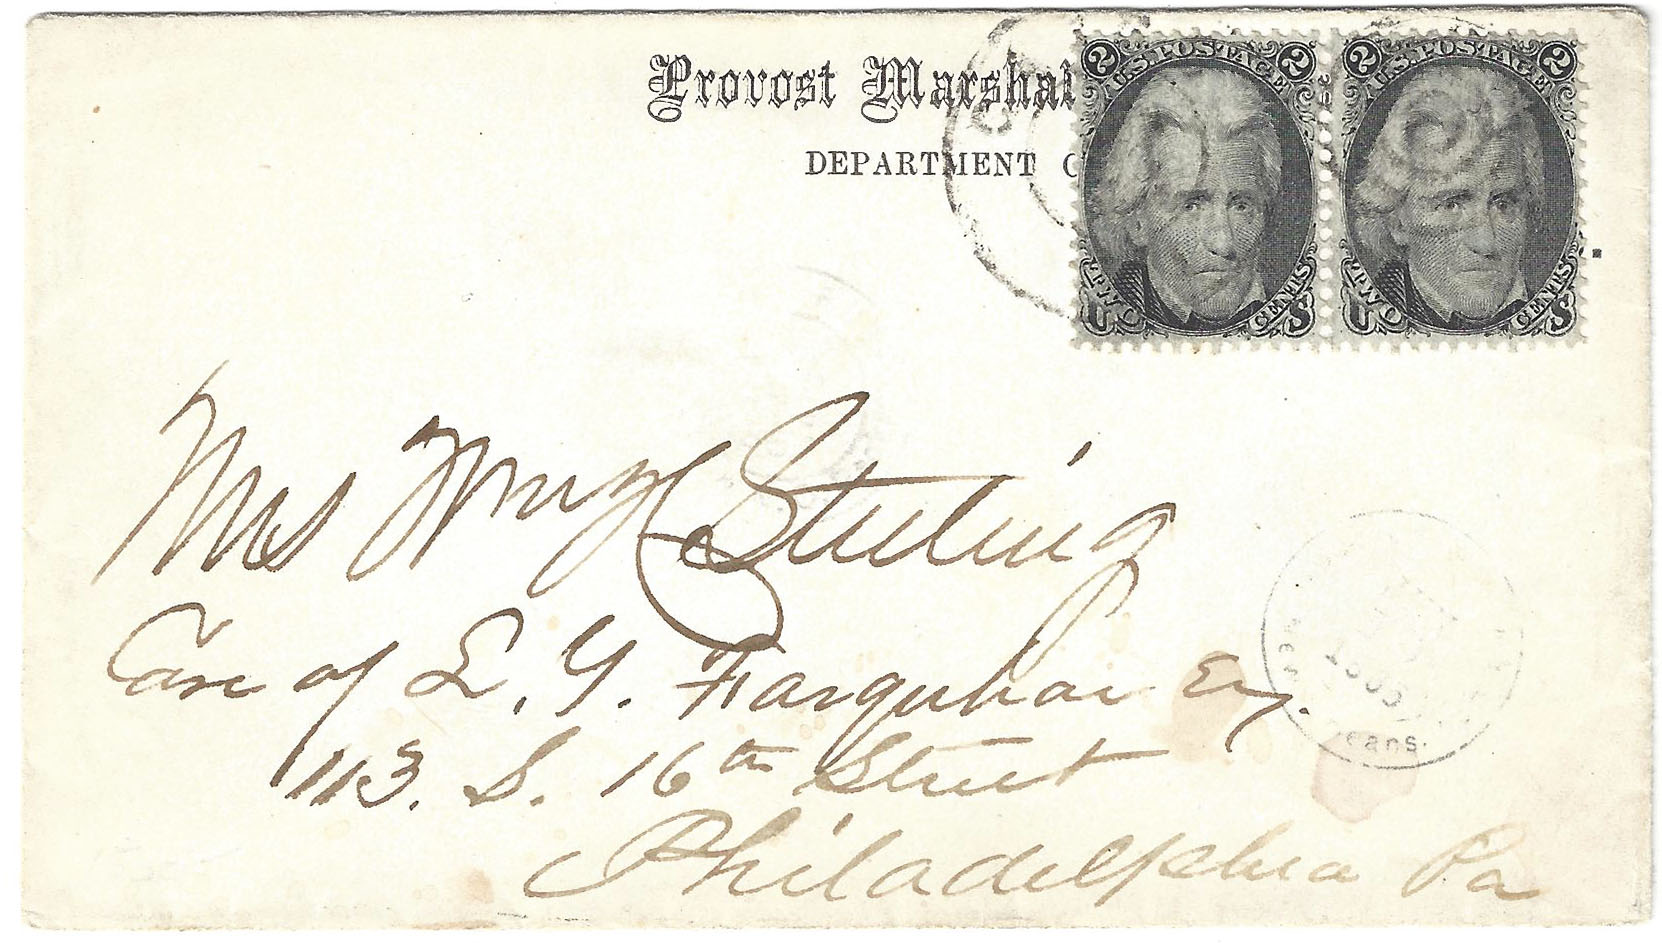 Provost Marshal
DEPARTMENT
2 U.S. POSTAGE 2
TWO CENTS
U S
2 U.S. POSTAGE 2
TWO CENTS
U S
Mrs Sterling
Care of E. G. Farquhar Esq.
113. S. 16th Street
Philadelphia Pa
eans.